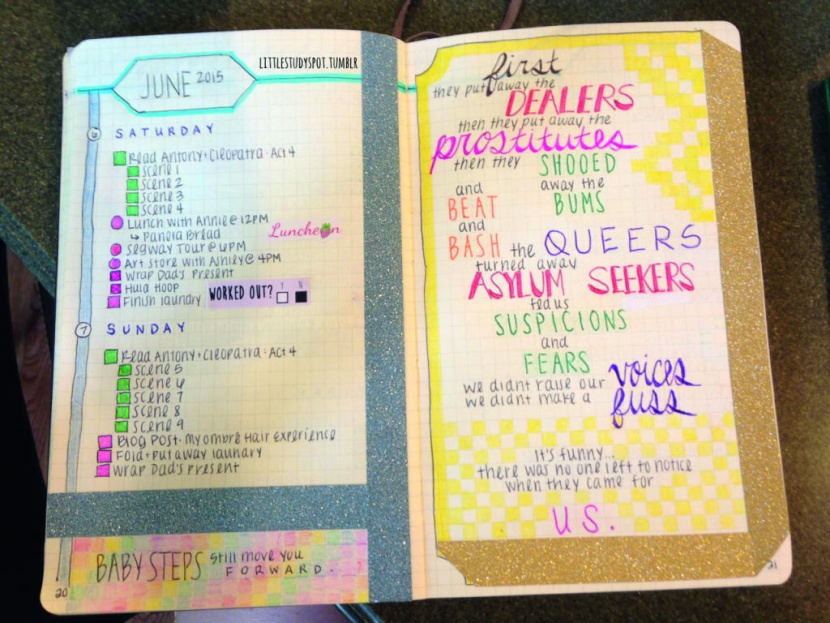 JUNE 2015
LITTLESTUDYSPOT.TUMBLR
6 SATURDAY
Read Antony + Cleopatra: Act 4
Scene 1
Scene 2
Scene 3
Scene 4
Lunch with Annie @ 12PM
↳ Panera Bread
Luncheon
Segway Tour @ 4PM
Art Store with Ashley @ 4PM
Wrap Dad's Present
Hula Hoop
Finish laundry
WORKED OUT? Y N
7 SUNDAY
Read Antony + Cleopatra: Act 4
Scene 5
Scene 6
Scene 7
Scene 8
Scene 9
Blog Post: My Ombré Hair Experience
Fold + put away laundry
Wrap Dad's Present
BABY STEPS still move you
FORWARD.
20
first
they put away the
DEALERS
then they put away the
prostitutes
then they SHOOED
and away the
BEAT BUMS
and
BASH the QUEERS
turned away
ASYLUM SEEKERS
fed us
SUSPICIONS
and
FEARS
we didnt raise our voices
we didnt make a fuss
It's funny...
there was no one left to notice
when they came for
US.
21